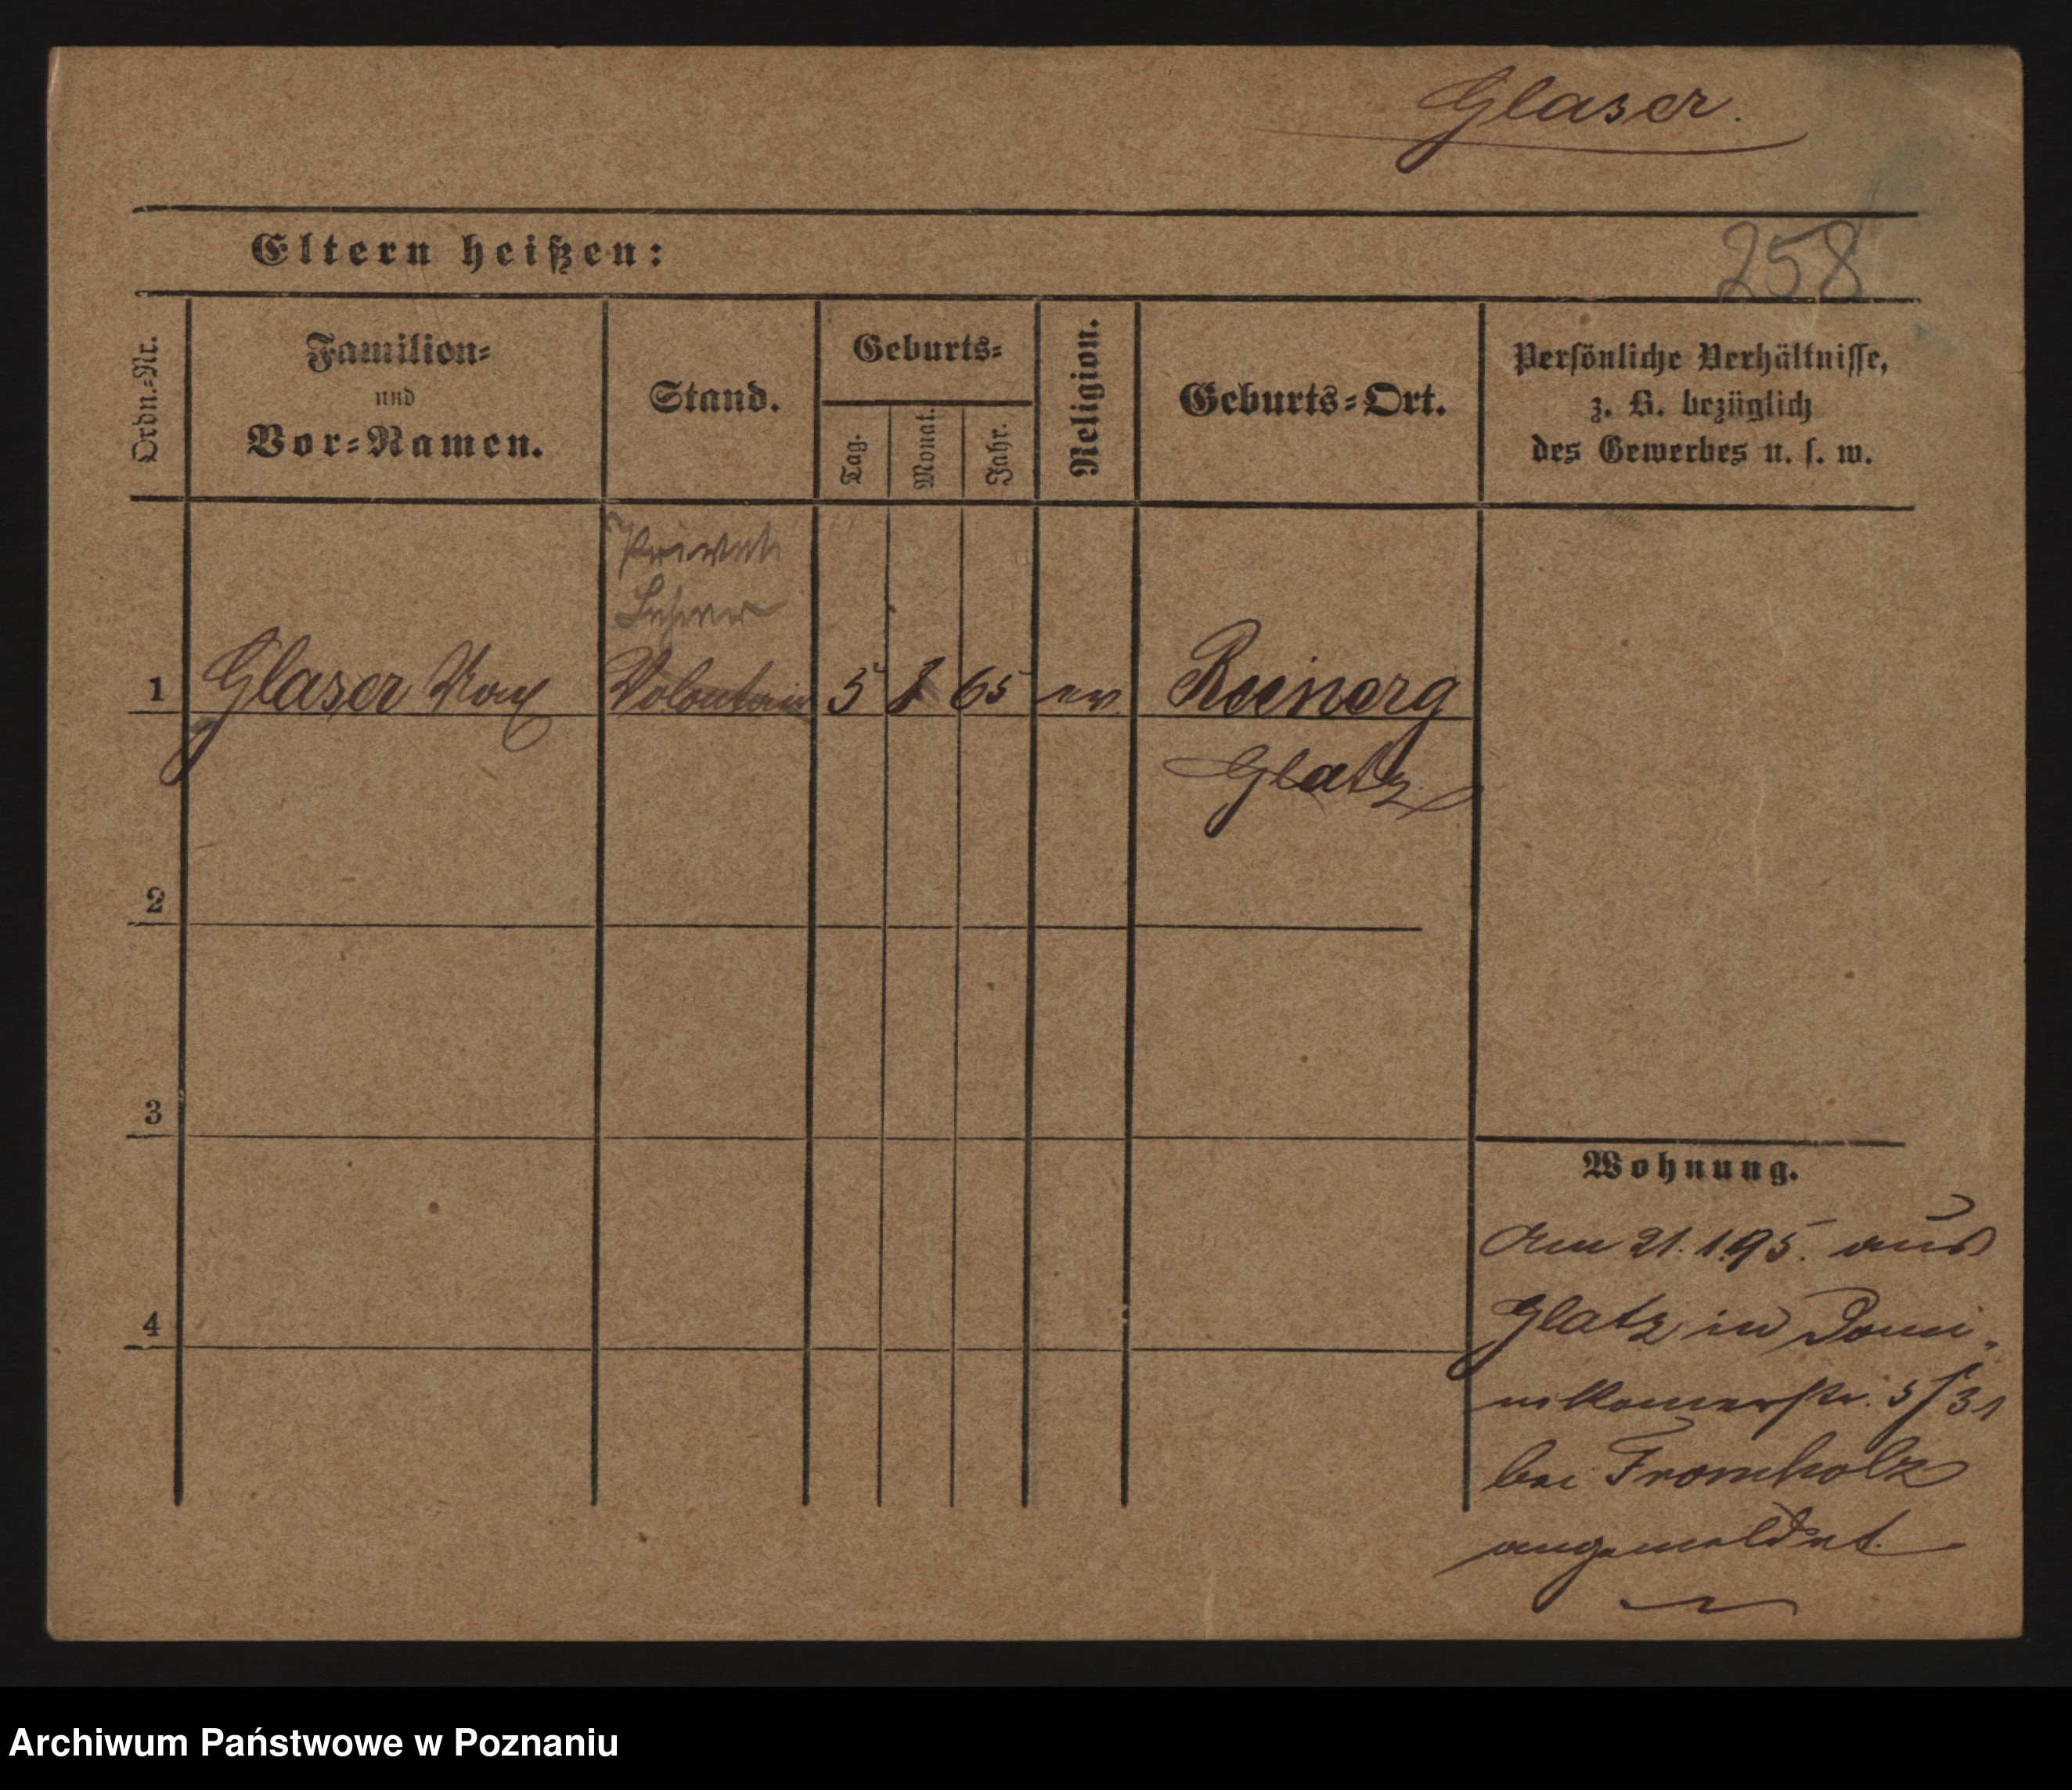 Glaser.
Eltern heißen:
258
Ordn.=Nr.
Familien=
und
Vor=Namen.
Stand.
Geburts=
Tag.
Monat.
Jahr.
Religion.
Geburts=Ort.
Persönliche Verhältnisse,
z. B. bezüglich
des Gewerbes u. s. w.
Privat
Lehrer
1 Glaser Max Volontair 5 65 ev. Reinerz
Glatz
2
3
4
Wohnung.
Am 21.1.95. aus
Glatz in Domi-
nikanerstr. 5/31
bei Fromholz
angemeldet.
Archiwum Państwowe w Poznaniu